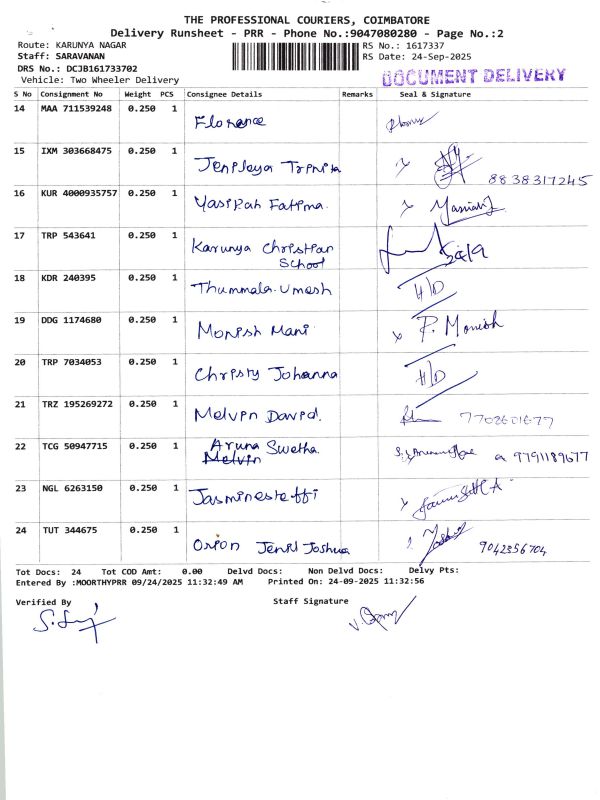 THE PROFESSIONAL COURIERS, COIMBATORE
Delivery Runsheet - PRR - Phone No.:9047080280 - Page No.:2
Route: KARUNYA NAGAR
RS No.: 1617337
Staff: SARAVANAN
RS Date: 24-Sep-2025
DRS No.: DCJB161733702
Vehicle: Two Wheeler Delivery
DOCUMENT DELIVERY
S No Consignment No Weight PCS Consignee Details Remarks Seal & Signature
14 MAA 711539248 0.250 1 Florence
15 IXM 303668475 0.250 1 Jenileya Trinita 8838317245
16 KUR 4000935757 0.250 1 Yasirah Fatima
17 TRP 543641 0.250 1 Karunya Christian
School
18 KDR 240395 0.250 1 Thummala Umesh H/D
19 DDG 1174680 0.250 1 Monish Mani P. Monish
20 TRP 7034053 0.250 1 Christy Johanna H/D
21 TRZ 195269272 0.250 1 Melvin David
22 TCG 50947715 0.250 1 Aruna Swetha
Melvin
9791189677
23 NGL 6263150 0.250 1 Jasminesteffi
24 TUT 344675 0.250 1 Orion Jenil Joshua 9042356704
Tot Docs: 24 Tot COD Amt: 0.00 Delvd Docs: Non Delvd Docs: Delvy Pts:
Entered By :MOORTHYPRR 09/24/2025 11:32:49 AM Printed On: 24-09-2025 11:32:56
Verified By Staff Signature